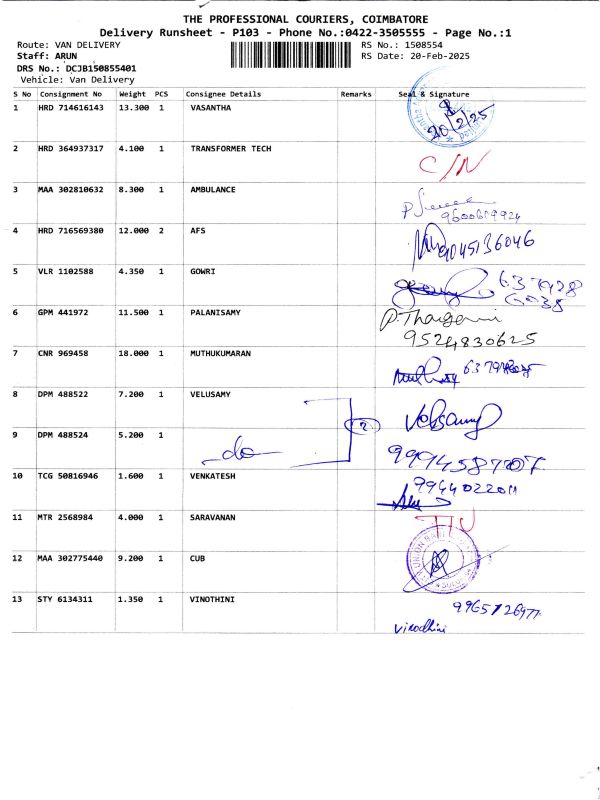 THE PROFESSIONAL COURIERS, COIMBATORE
Delivery Runsheet - P103 - Phone No.:0422-3505555 - Page No.:1
Route: VAN DELIVERY RS No.: 1508554
Staff: ARUN RS Date: 20-Feb-2025
DRS No.: DCJB150855401
Vehicle: Van Delivery
S No Consignment No Weight PCS Consignee Details Remarks Seal & Signature
1 HRD 714616143 13.300 1 VASANTHA
20/2/25
2 HRD 364937317 4.100 1 TRANSFORMER TECH
C/N
3 MAA 302810632 8.300 1 AMBULANCE
4 HRD 716569380 12.000 2 AFS
9045136046
5 VLR 1102588 4.350 1 GOWRI
637928
6 GPM 441972 11.500 1 PALANISAMY
9524830625
7 CNR 969458 18.000 1 MUTHUKUMARAN
8 DPM 488522 7.200 1 VELUSAMY
2
9 DPM 488524 5.200 1
do
9994587707
10 TCG 50816946 1.600 1 VENKATESH
11 MTR 2568984 4.000 1 SARAVANAN
12 MAA 302775440 9.200 1 CUB
13 STY 6134311 1.350 1 VINOTHINI
Vinodhini